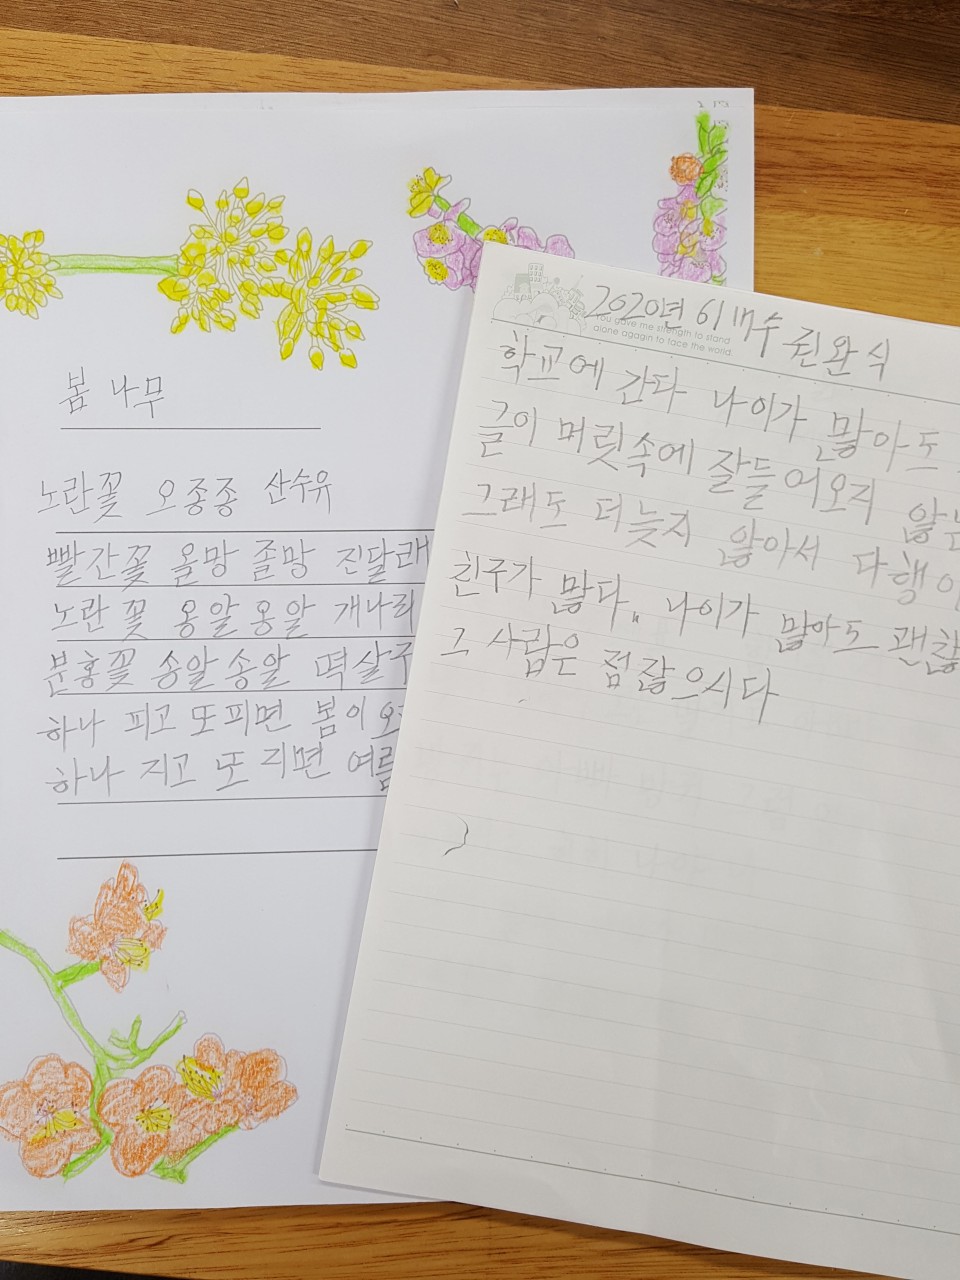 봄 나무
노란꽃 오종종 산수유
빨간꽃 올망 졸망 진달래
노란 꽃 옹알옹알 개나리
분홍꽃 송알송알 떡살구
하나 피고 또피면 봄이
하나 지고 또 지면 여름
2020년
You gave me strength to stand
alone agagin to face the world.
학교에 간다 나이가 많아도
글이 머릿속에 잘들어오지 않는
그래도 더늦지 않아서 다행이
친구가 많다. 나이가 많아도 괜찮
그 사람은 점잖으시다